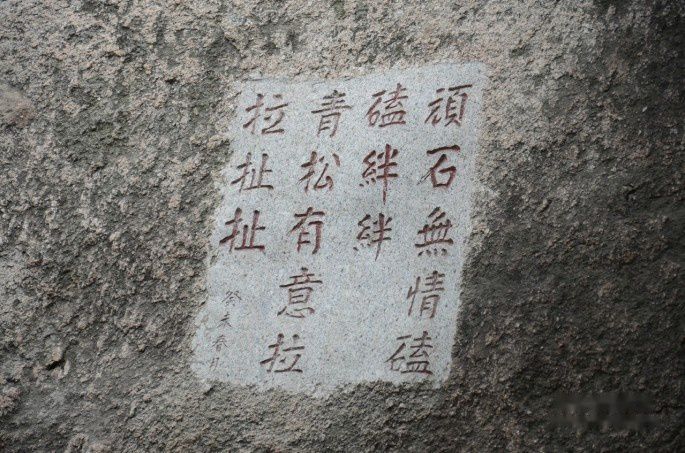 頑石無情磕
磕絆絆
青松有意拉
拉扯扯
癸未春月